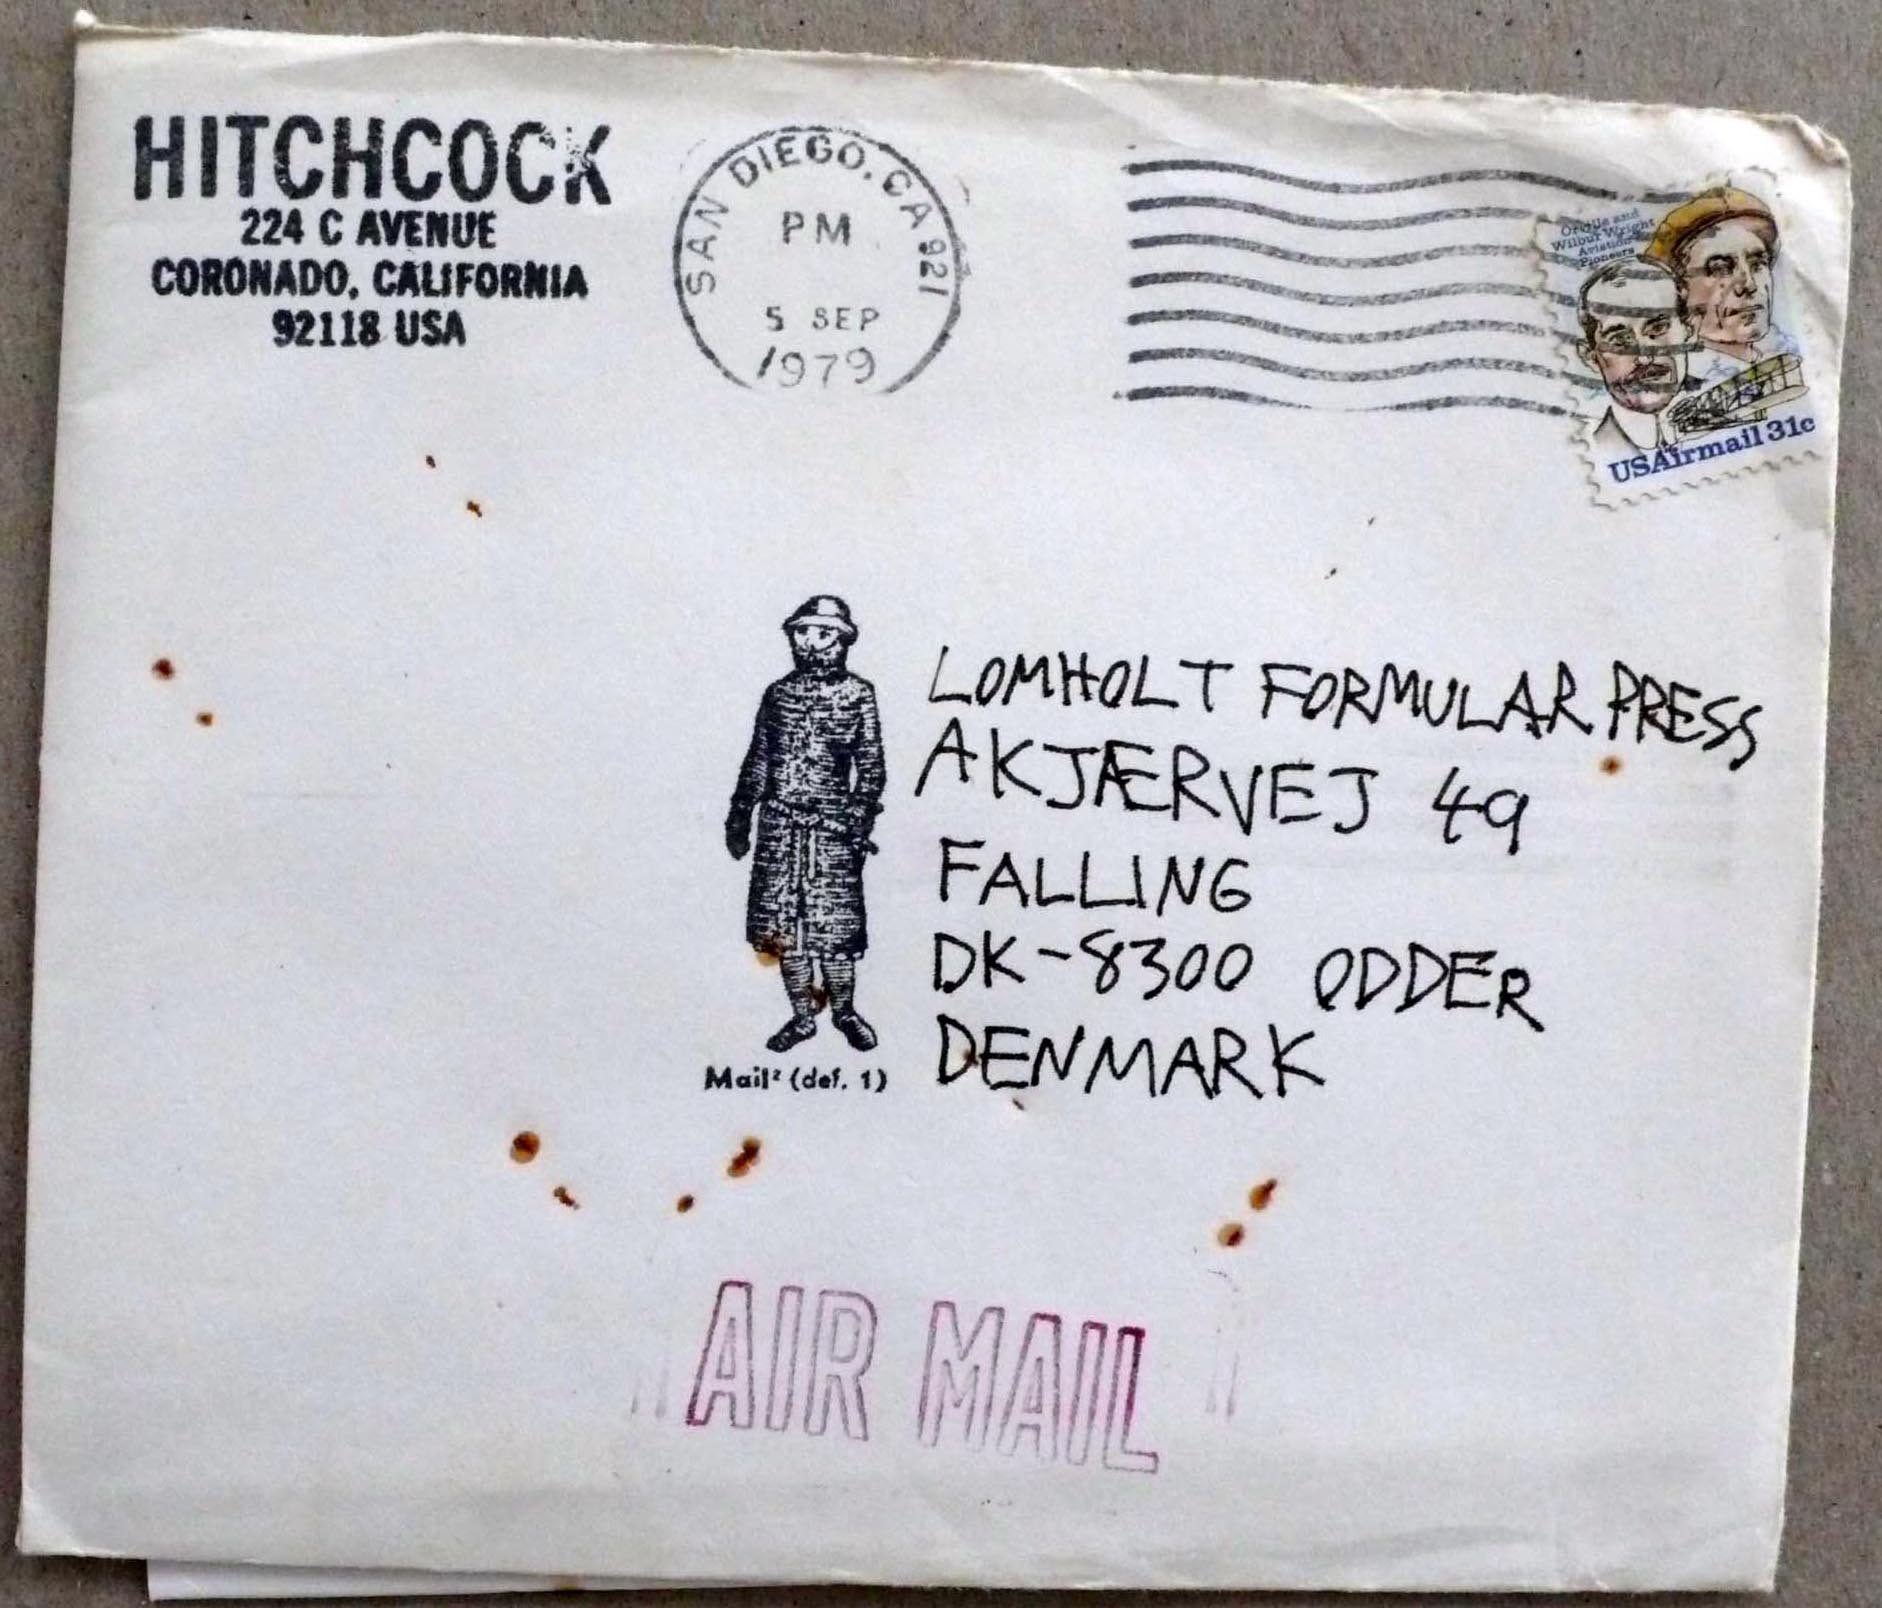 HITCHCOCK
224 C AVENUE
CORONADO, CALIFORNIA
92118 USA
SAN DIEGO, CA 921
PM
5 SEP
1979
Orville and
Wilbur Wright
Aviation
Pioneers
USAirmail 31c
LOMHOLT FORMULAR PRESS
AKJÆRVEJ 49
FALLING
DK-8300 ODDER
DENMARK
Mail² (def. 1)
AIR MAIL